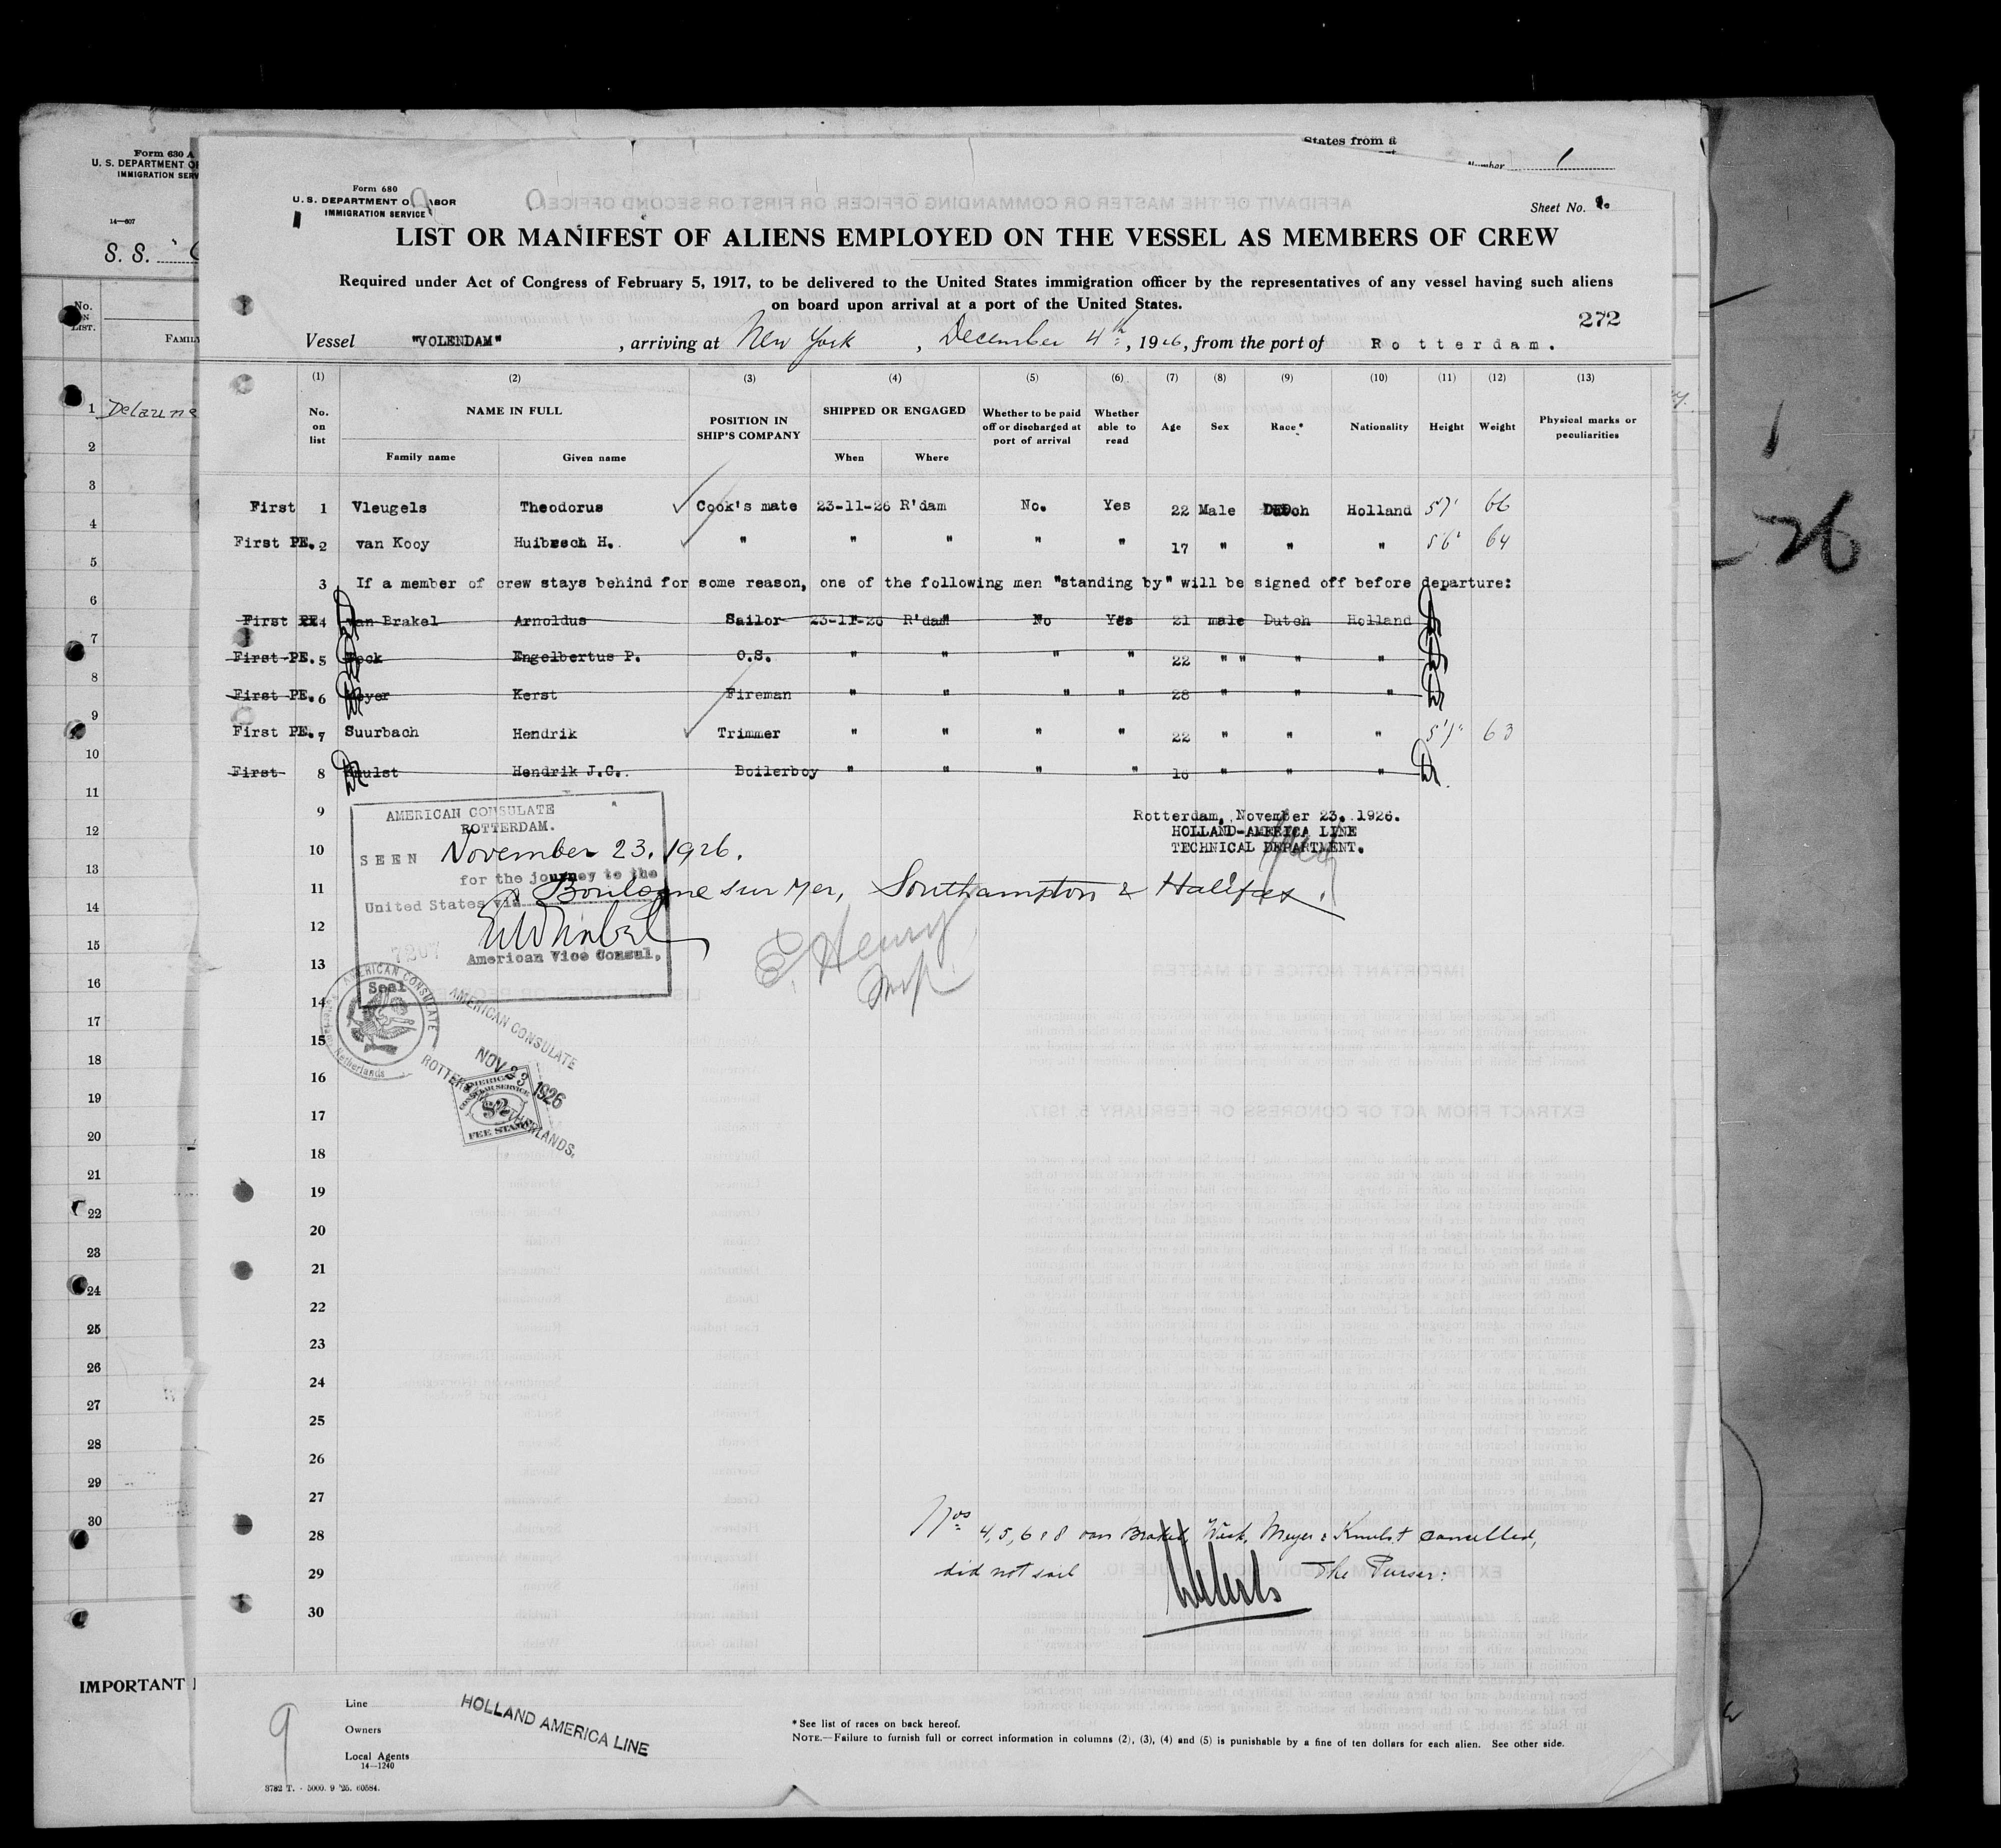 Form 630 A
U. S. DEPARTMENT OF
IMMIGRATION SERV
14—607
S. S.
No.
ON
LIST.
FAMILY
1 Delaune
2
3
4
5
6
7
8
9
10
11
12
13
14
15
16
17
18
19
20
21
22
23
24
25
26
27
28
29
30
IMPORTANT
States from a
Number 1
Form 680
U. S. DEPARTMENT OF LABOR
IMMIGRATION SERVICE
Sheet No.
LIST OR MANIFEST OF ALIENS EMPLOYED ON THE VESSEL AS MEMBERS OF CREW
Required under Act of Congress of February 5, 1917, to be delivered to the United States immigration officer by the representatives of any vessel having such aliens
on board upon arrival at a port of the United States.
272
Vessel "VOLENDAM" , arriving at New York , December 4th, 1926, from the port of Rotterdam.
(1) (2) (3) (4) (5) (6) (7) (8) (9) (10) (11) (12) (13)
No. on list NAME IN FULL POSITION IN SHIP'S COMPANY SHIPPED OR ENGAGED Whether to be paid off or discharged at port of arrival Whether able to read Age Sex Race* Nationality Height Weight Physical marks or peculiarities
Family name Given name When Where
First 1 Vleugels Theodorus Cook's mate 23-11-26 R'dam No. Yes 22 Male Dutch Holland 5'7" 66
First PE. 2 van Kooy Huibrech H. " " " " " 17 " " " 5'6" 64
3 If a member of crew stays behind for some reason, one of the following men "standing by" will be signed off before departure:
First PE. 4 van Brakel Arnoldus Sailor 23-11-26 R'dam No Yes 21 male Dutch Holland
First PE. 5 Engelbertus P. O.S. " " " " 22 " " " "
First PE. 6 Meyer Kerst Fireman " " " " 28 " " "
First PE. 7 Suurbach Hendrik Trimmer " " " " 22 " " " 63
First 8 Knulst Hendrik J.C. Boilerboy " " " " 16 " " "
9
10
11
12
13
14
15
16
17
18
19
20
21
22
23
24
25
26
27
28
29
30
AMERICAN CONSULATE
ROTTERDAM.
SEEN November 23. 1926.
for the journey to the
United States via Boulogne sur Mer, Southampton & Halifax.
American Vice Consul.
7207
Rotterdam, November 23. 1926.
HOLLAND-AMERICA LINE
TECHNICAL DEPARTMENT.
E. Henry
AMERICAN CONSULATE
Seal
Rotterdam, Netherlands
AMERICAN CONSULATE
NOV 23 1926
ROTTERDAM, NETHERLANDS.
AMERICAN
CONSULAR SERVICE
$2
FEE STAMP
Nos 4, 5, 6 & 8 van Brakel, Meyer & Knulst cancelled,
did not sail The Purser:
9
Line HOLLAND AMERICA LINE
Owners
Local Agents
14—1240
*See list of races on back hereof.
NOTE.—Failure to furnish full or correct information in columns (2), (3), (4) and (5) is punishable by a fine of ten dollars for each alien. See other side.
3782 T. - 5000. 9 '25. 60584.
26